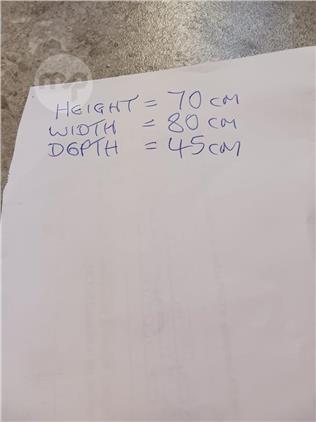 HEIGHT = 70 cm
WIDTH = 80 cm
DEPTH = 45 cm